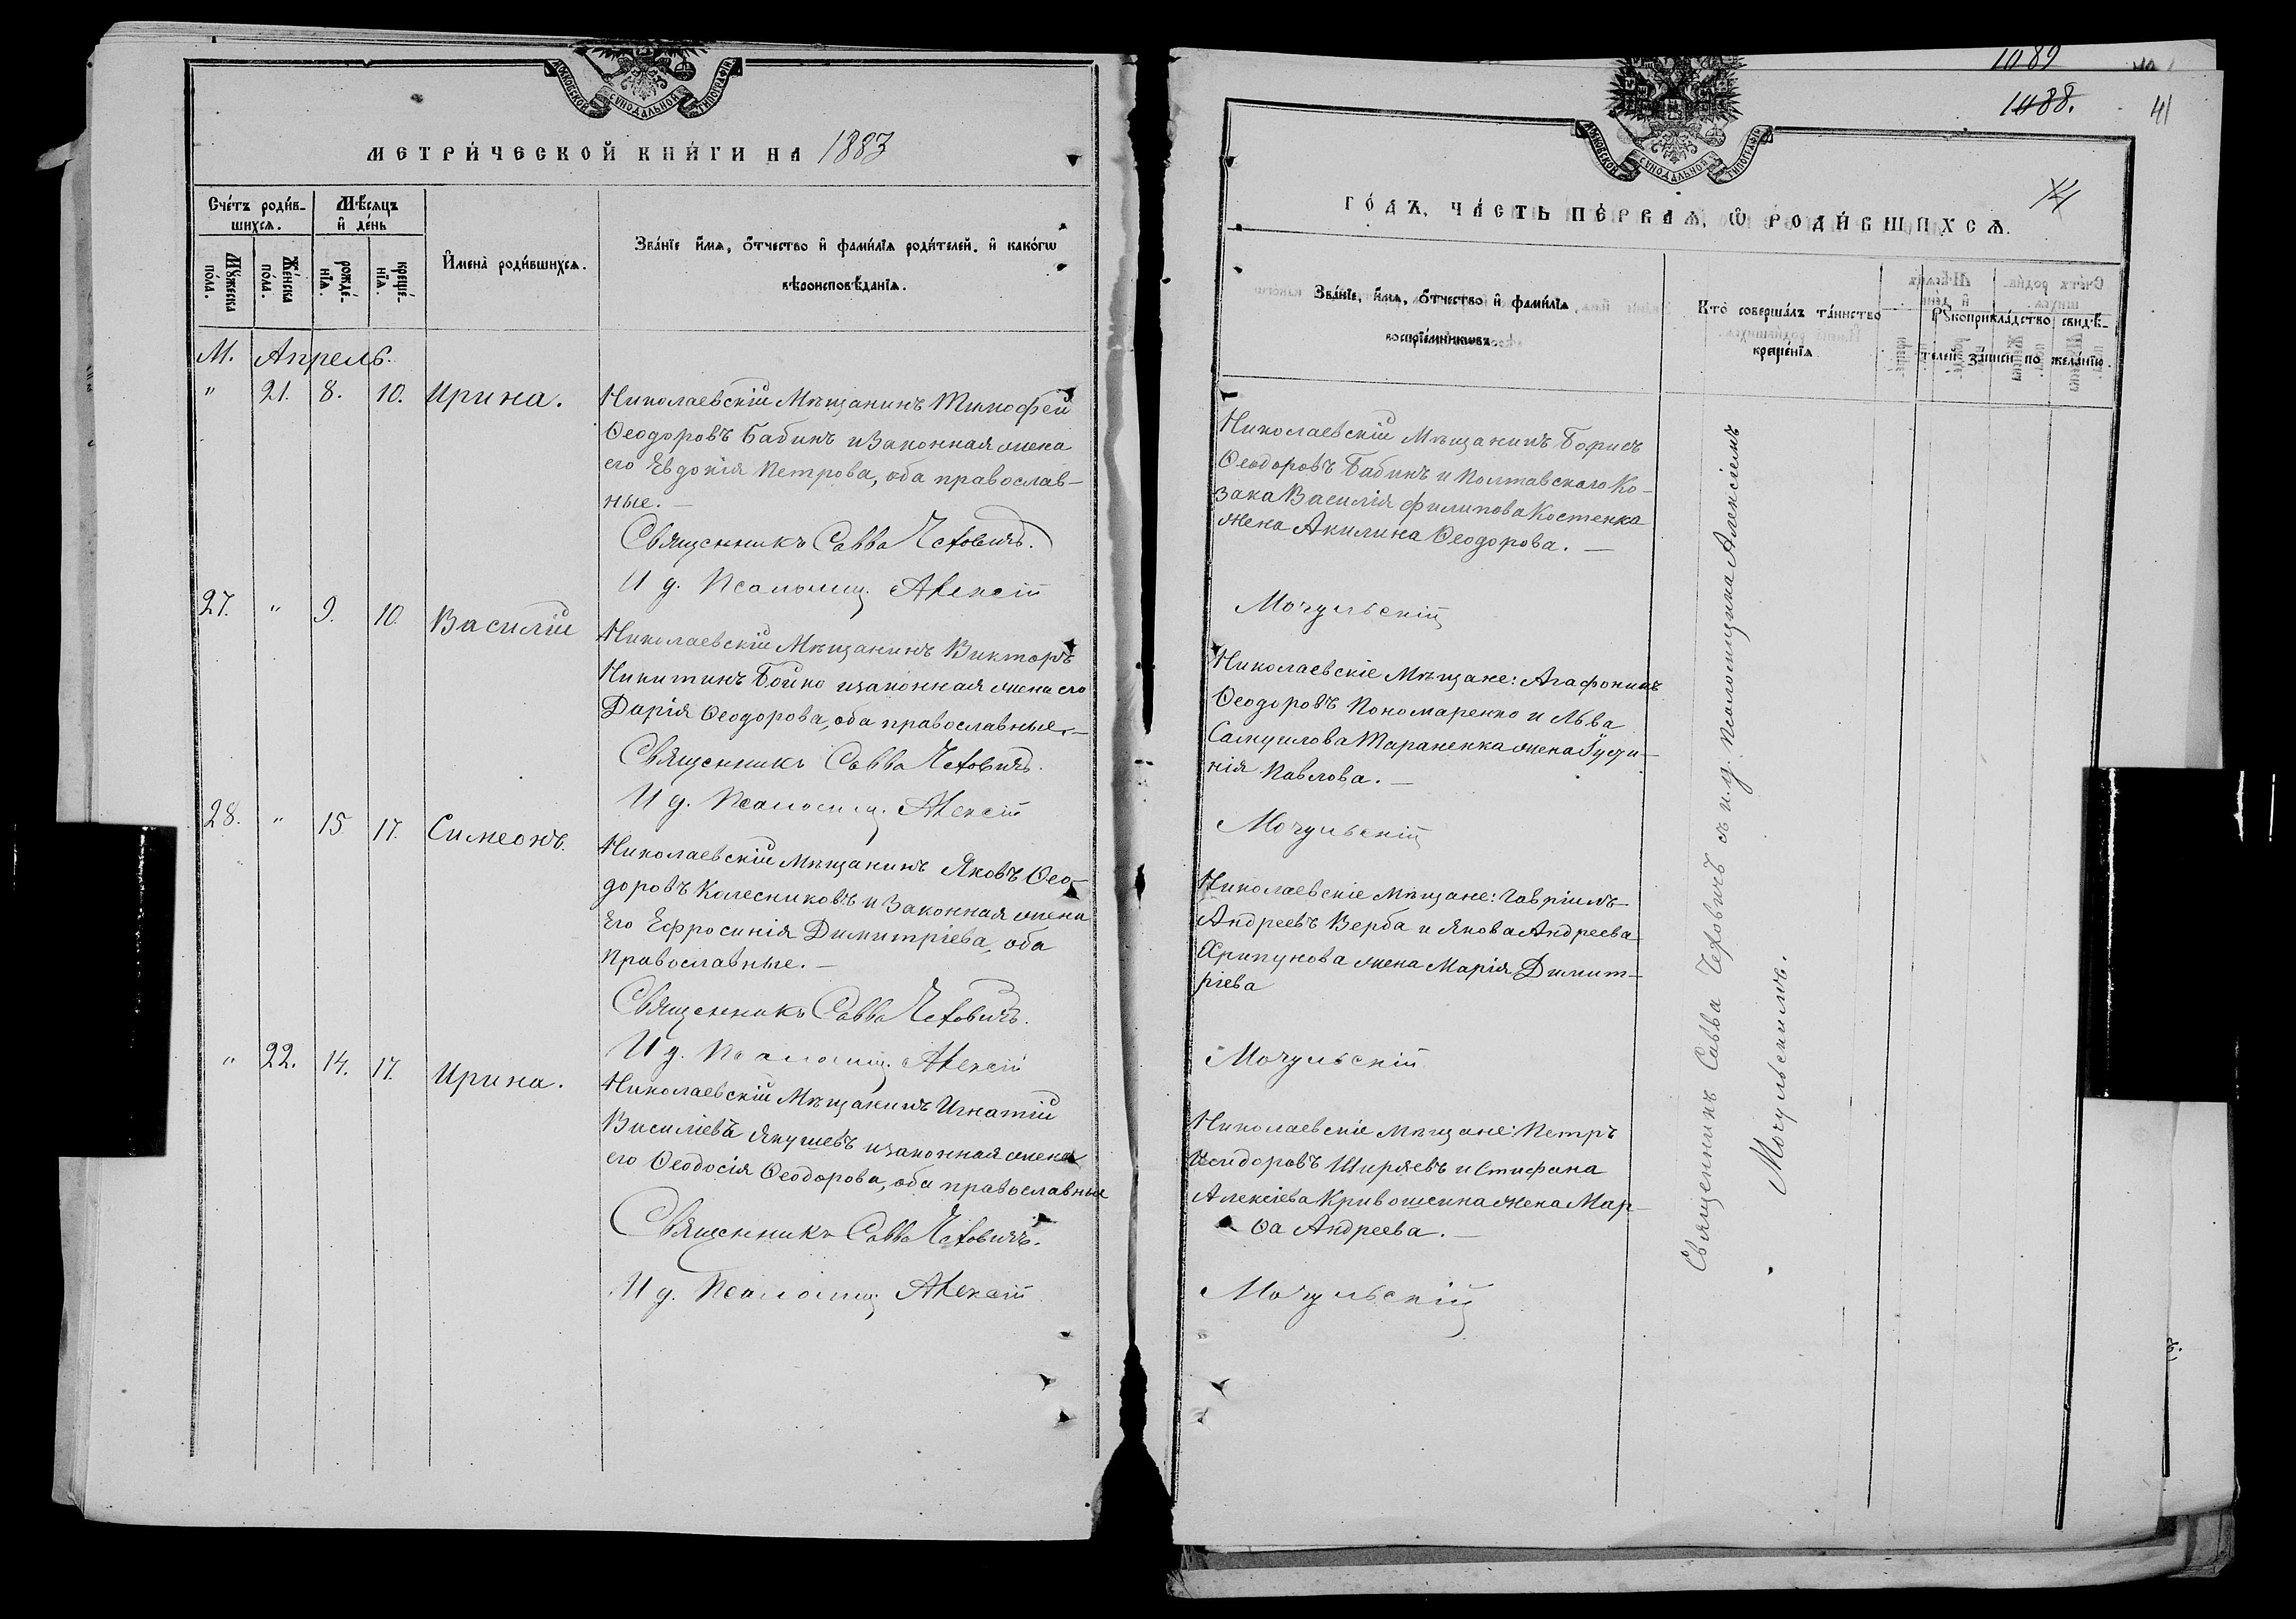 МОСКОВСКОЙ СѴНОДАЛЬНОЙ ТИПОГРАФІИ
МЕТРИ́ЧЕСКОЙ КНИ́ГИ НА 1883
Сче́тъ роди́в-
шихсѧ.
Мѣ́сѧцъ
и҆ де́нь
Мꙋ́жеска
по́ла.
Же́нска
по́ла.
рожде́-
нїѧ.
креще́-
нїѧ.
И҆мена̀ роди́вшихсѧ.
Зва́нїе и҆́мѧ, ѻ҆́тчество и҆ фами́лїѧ роди́телей. и҆ како́гѡ
вѣроисповѣ́данїѧ.
М. Апрель.
" 21. 8. 10. Ирина.
Николаевскій Мѣщанинъ Тимофей
Ѳеодоровъ Бабинъ и Законная жена
его Евдокія Петрова, оба православ-
ные. —
Священникъ Савва Чеховичъ.
И д. Псаломщ. Алексій
27. " 9. 10. Василій
Николаевскій Мѣщанинъ Викторъ
Никитинъ Бойко изаконная жена его
Дарія Ѳеодорова, оба православные. —
Священникъ Савва Чеховичъ.
И д. Псаломщ. Алексій
28. " 15 17. Симеонъ.
Николаевскій Мѣщанинъ Яковъ Ѳео-
доровъ Колесниковъ и Законная жена
Его Ефросинія Димитріева, оба
Православные. —
Священникъ Савва Чеховичъ.
И д. Псаломщ. Алексій
" 22. 14. 17. Ирина.
Николаевскій Мѣщанинъ Игнатій
Василіевъ Якушевъ изаконная жена
его Ѳеодосія Ѳеодорова, оба православные
Священникъ Савва Чеховичъ.
И д. Псаломщ. Алексій
1089
1088. 41
МОСКОВСКОЙ СѴНОДАЛЬНОЙ ТИПОГРАФІИ
ГО́ДЪ, ЧА́СТЬ ПЕ́РВАѦ, Ѡ҆ РОДИ́ВШИХСѦ.
Зва́нїе, и҆́мѧ, ѻ҆́тчество и҆ фами́лїѧ
воспрїе́мникѡвъ.
Кто̀ соверша́лъ та́инство
креще́нїѧ
Рꙋкоприкла́дство свидѣ́-
телей за́писи по жела́нїю.
Николаевскій Мѣщанинъ Борисъ
Ѳеодоровъ Бабинъ и Полтавского Ко-
зака Василія Филипова Костенка
жена Акилина Ѳеодорова. —
Мочульскій
Николаевскіе Мѣщане: Агафоникъ
Ѳеодоровъ Пономаренко и Льва
Самуилова Тараненка жена Іусти-
нія Павлова. —
Мочульскій
Николаевскіе Мѣщане: Гавріилъ
Андреевъ Верба и Якова Андреева
Хрипунова жена Марія Димит-
ріева
Мочульскій
Николаевскіе мѣщане: Петръ
Исидоровъ Ширяевъ и Стефана
Алексіева Кривошеина жена Мар-
ѳа Андреева. —
Мочульскій
Священникъ Савва Чеховичъ съ и.д. псаломщика Алексіемъ
Мочульскимъ.